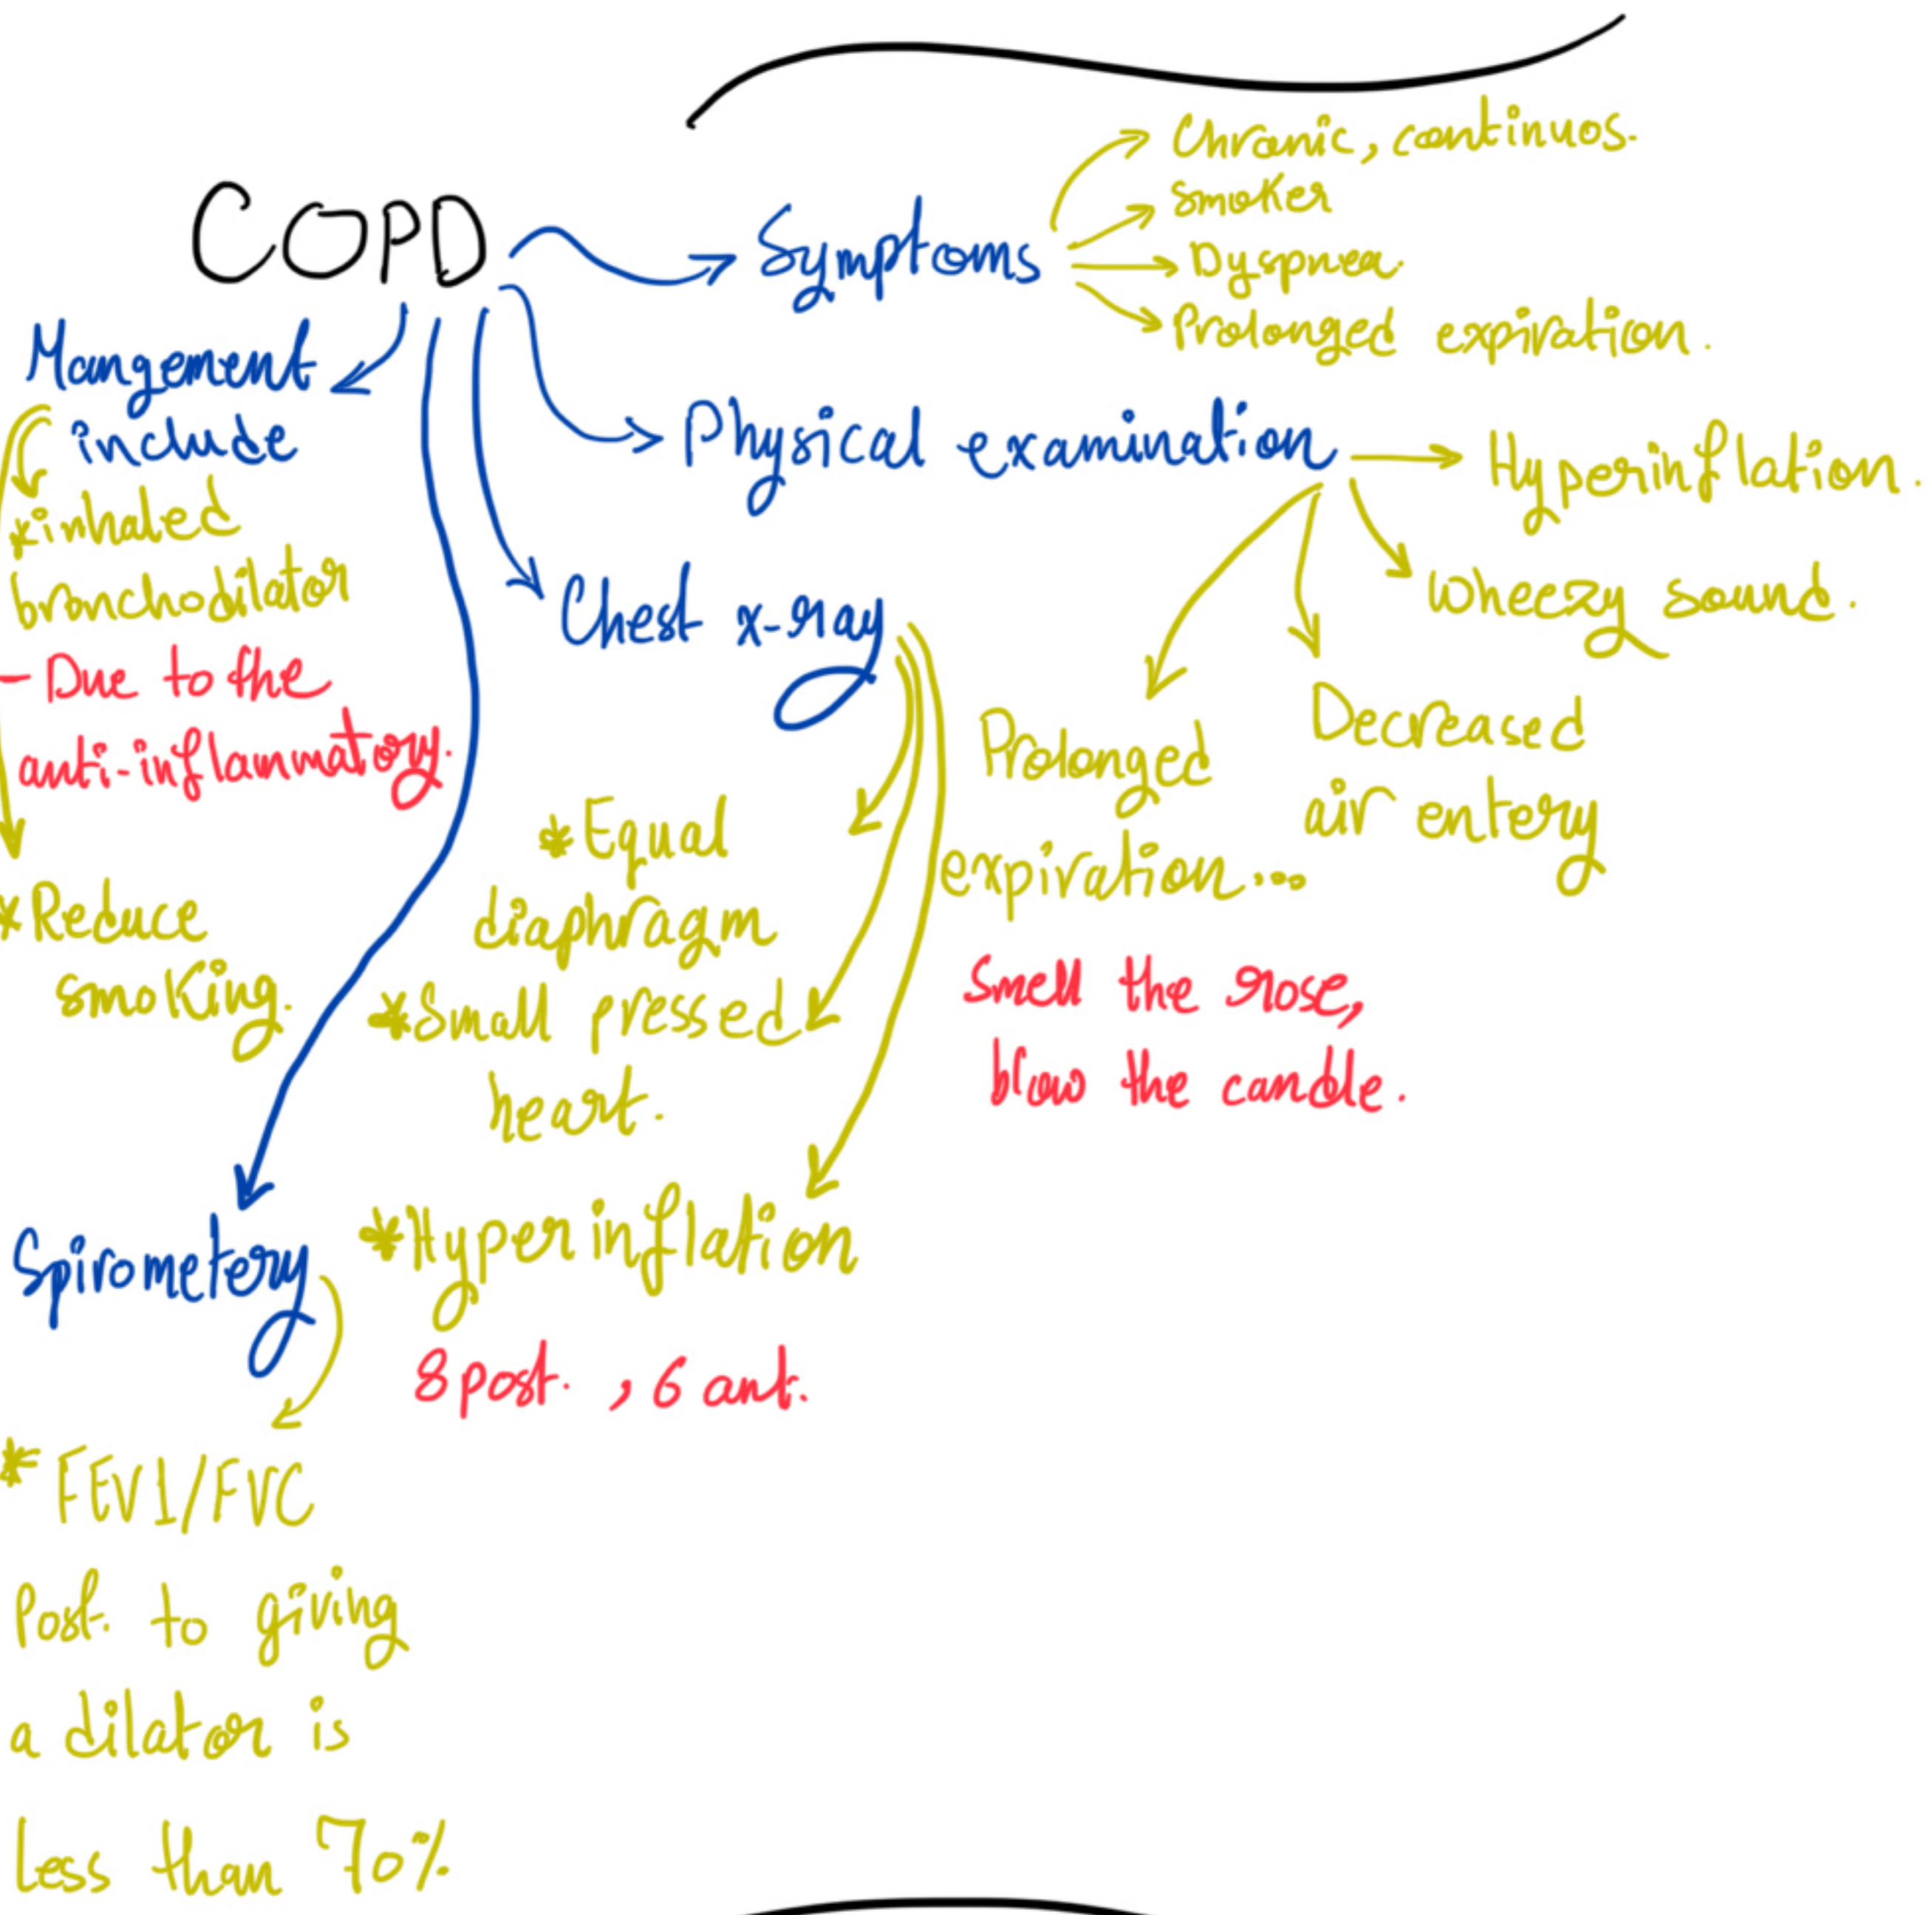 COPD
Symptoms
Chronic, continuos.
smoker
Dyspnea.
Prolonged expiration.
Physical examination
Hyperinflation.
Wheezy sound.
Decreased
air entery
Prolonged
expiration...
Smell the rose,
blow the candle.
Chest x-ray
*Equal
diaphragm
*Small pressed
heart.
*Hyperinflation
8 post. , 6 ant.
Mangement
include
*inhaled
bronchodilator
- Due to the
anti-inflammatory.
*Reduce
smoking.
Spirometery
* FEV1/FVC
Post. to giving
a dilator is
less than 70%